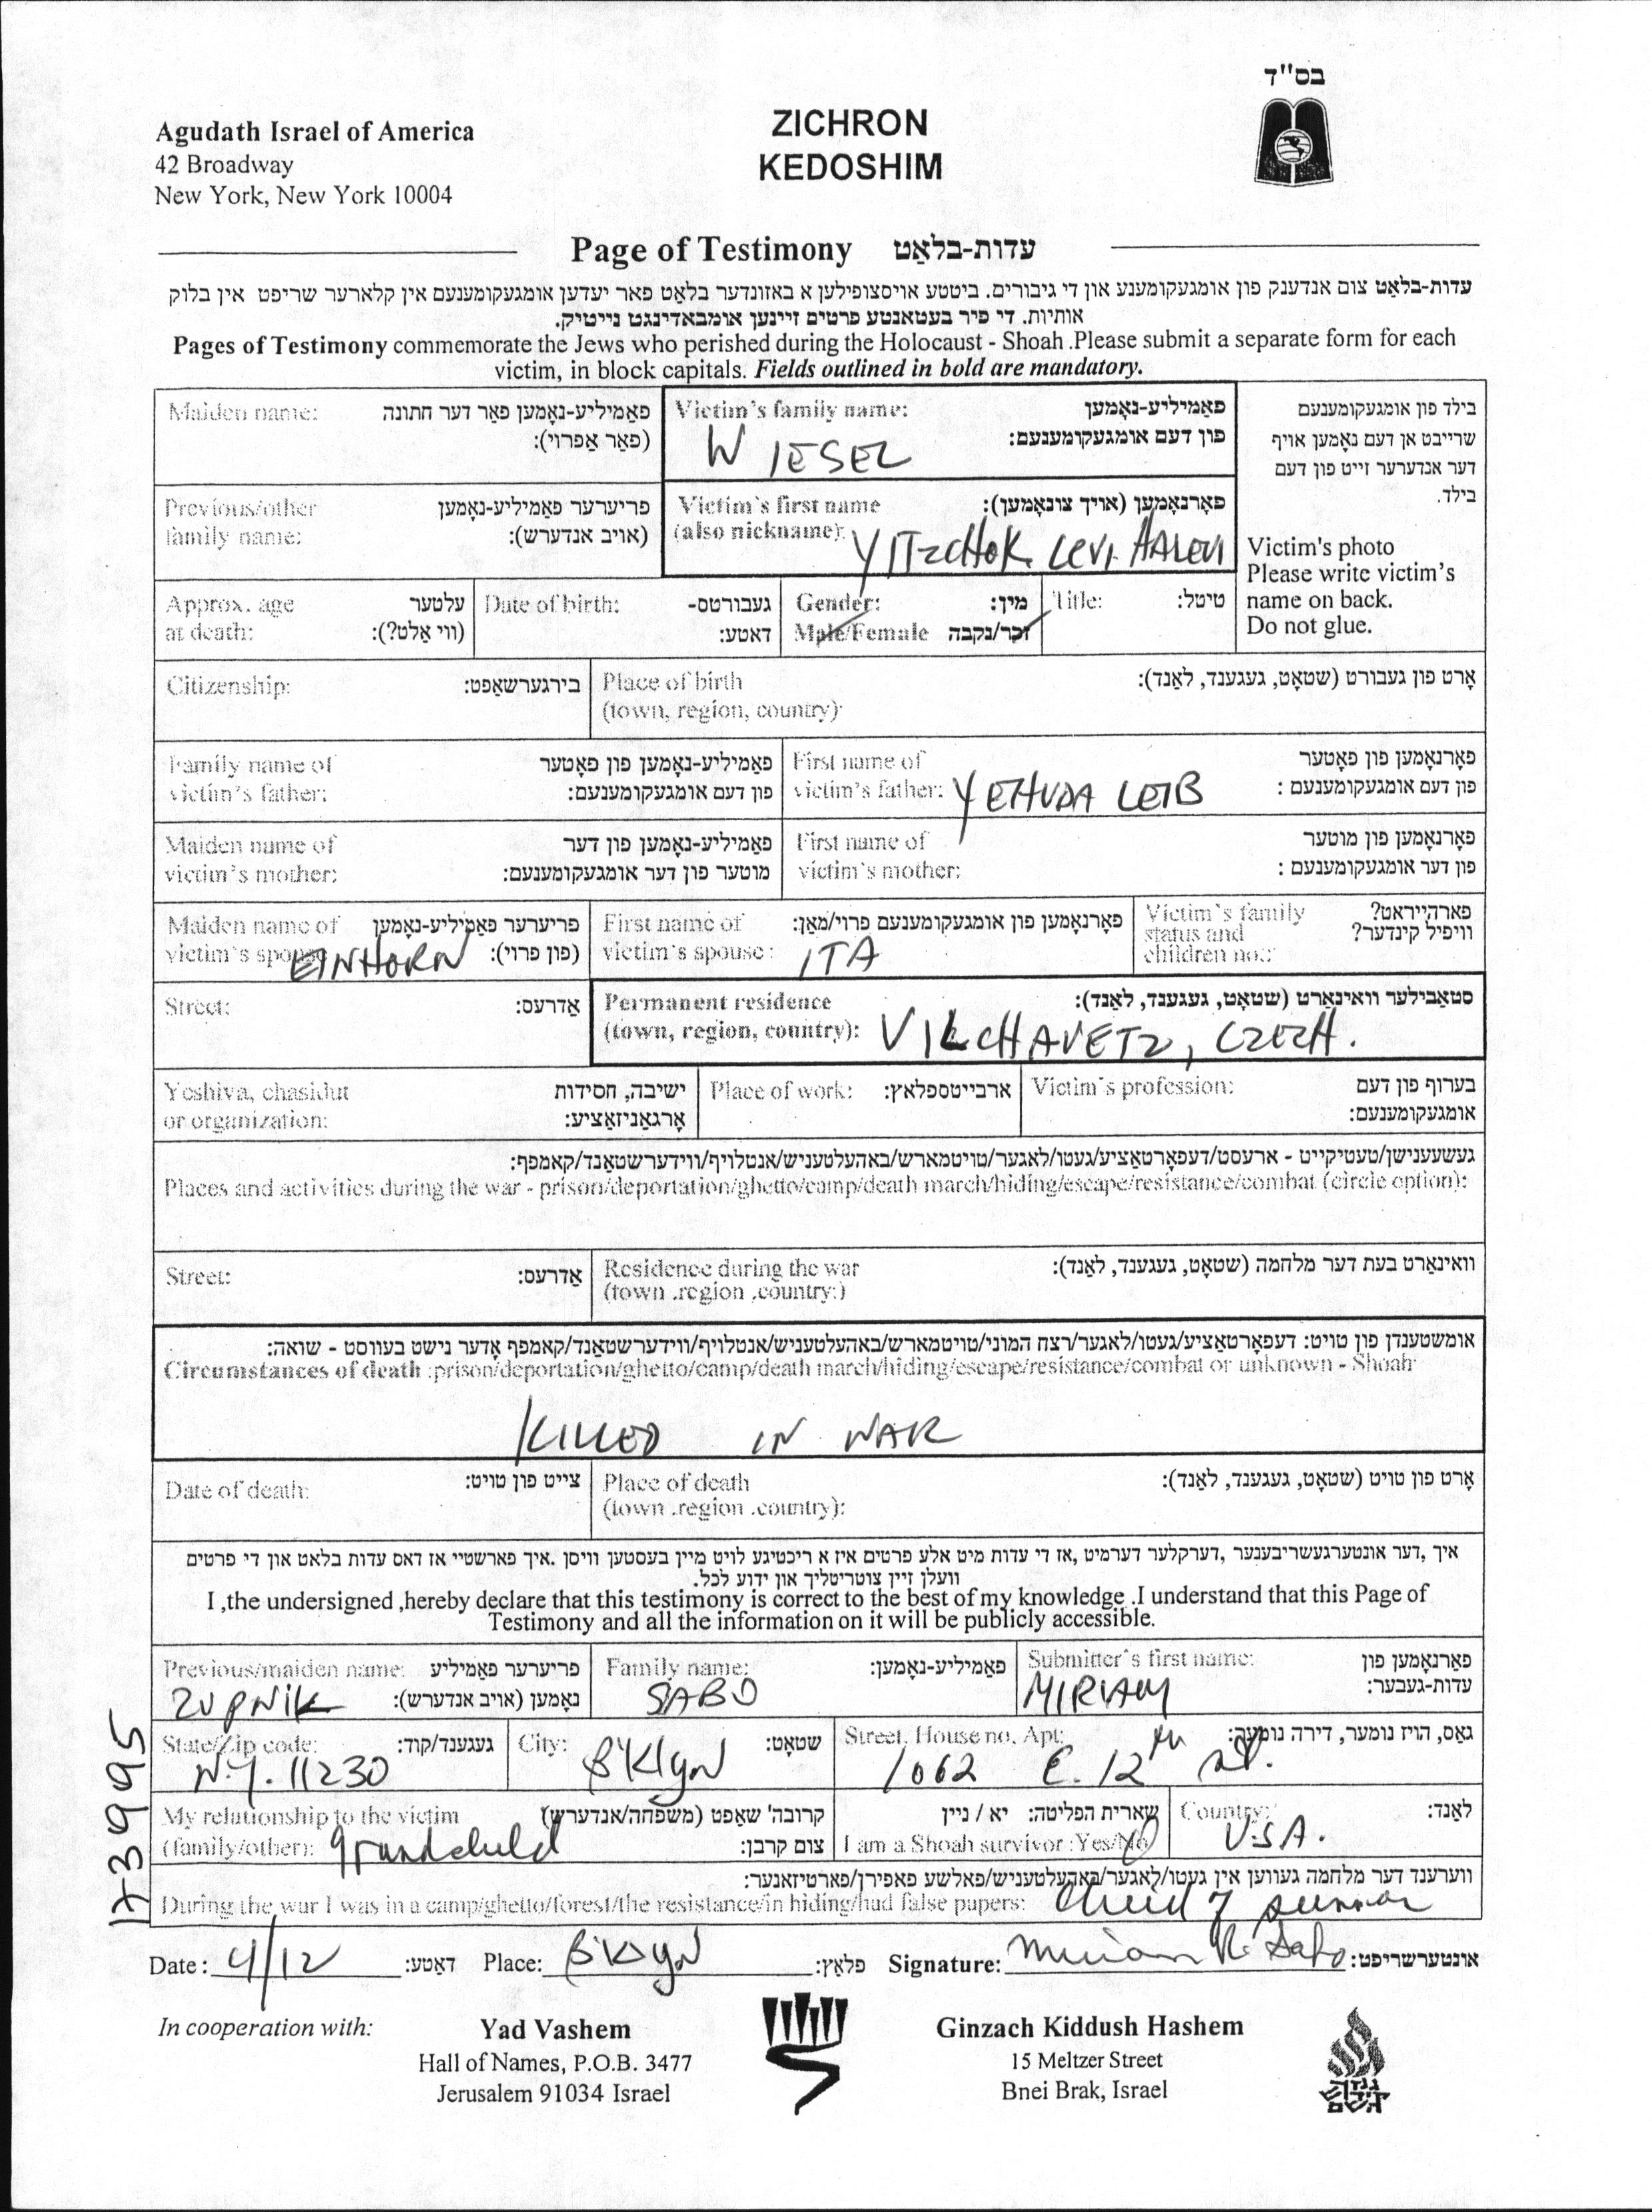 בס"ד
Agudath Israel of America
42 Broadway
New York, New York 10004
ZICHRON
KEDOSHIM
Page of Testimony עדות-בלאַט
עדות-בלאַט צום אנדענק פון אומגעקומענע און די גיבורים. ביטטע אויסצופילען א באזונדער בלאַט פאר יעדען אומגעקומענעם אין קלארער שריפט אין בלוק
אותיות. די פיר בעטאנטע פרטים זיינען אומבאדינגט נייטיק.
Pages of Testimony commemorate the Jews who perished during the Holocaust - Shoah .Please submit a separate form for each
victim, in block capitals. Fields outlined in bold are mandatory.
Maiden name: פאַמיליע-נאָמען פאַר דער חתונה
(פאַר אַפרוי):
Victim's family name: פאַמיליע-נאָמען
פון דעם אומגעקומענעם:
WIESEL
בילד פון אומגעקומענעם
שרייבט אן דעם נאָמען אויף
דער אנדערער זייט פון דעם
בילד.
Victim's photo
Please write victim's
name on back.
Do not glue.
Previous/other פריערער פאַמיליע-נאָמען
family name: (אויב אנדערש):
Victim's first name פאָרנאָמען (אויך צונאָמען):
(also nickname): YITZCHOK LEVI HALEVI
Approx. age עלטער
at death: (ווי אַלט?):
Date of birth: געבורטס-
דאטע:
Gender: מין:
Male/Female זכר/נקבה
Title: טיטל:
Citizenship: בירגערשאַפט:
Place of birth אָרט פון געבורט (שטאָט, געגענד, לאַנד):
(town, region, country):
Family name of פאַמיליע-נאָמען פון פאָטער
victim's father: פון דעם אומגעקומענעם:
First name of פאָרנאָמען פון פאָטער
victim's father: YEHUDA LEIB פון דעם אומגעקומענעם :
Maiden name of פאַמיליע-נאָמען פון דער
victim's mother: מוטער פון דער אומגעקומענעם:
First name of פאָרנאָמען פון מוטער
victim's mother: פון דער אומגעקומענעם :
Maiden name of פריערער פאַמיליע-נאָמען
victim's spouse EINHORN (פון פרוי):
First name of פאָרנאָמען פון אומגעקומענעם פרוי/מאַן:
victim's spouse: ITA
Victim's family פארהייראט?
status and וויפיל קינדער?
children no.:
Street: אַדרעס:
Permanent residence סטאַבילער וואינאָרט (שטאָט, געגענד, לאַנד):
(town, region, country): VILCHAVETZ, CZECH.
Yeshiva, chasidut ישיבה, חסידות
or organization: אָרגאַניזאַציע:
Place of work: ארבייטספלאץ:
Victim's profession: בערוף פון דעם
אומגעקומענעם:
געשעענישן/טעטיקייט - ארעסט/דעפאָרטאַציע/געטו/לאגער/טויטמארש/באהעלטעניש/אנטלויף/ווידערשטאַנד/קאמפף:
Places and activities during the war - prison/deportation/ghetto/camp/death march/hiding/escape/resistance/combat (circle option):
Street: אַדרעס:
Residence during the war וואינאַרט בעת דער מלחמה (שטאָט, געגענד, לאַנד):
(town .region .country:)
אומשטענדן פון טויט: דעפאָרטאַציע/געטו/לאגער/רצח המוני/טויטמארש/באהעלטעניש/אנטלויף/ווידערשטאַנד/קאמפף אָדער נישט בעווסט - שואה:
Circumstances of death :prison/deportation/ghetto/camp/death march/hiding/escape/resistance/combat or unknown - Shoah
KILLED IN WAR
Date of death: צייט פון טויט:
Place of death אָרט פון טויט (שטאָט, געגענד, לאַנד):
(town .region .country):
איך ,דער אונטערגעשריבענער ,דערקלער דערמיט ,אז די עדות מיט אלע פרטים איז א ריכטיגע לויט מיין בעסטען וויסן .איך פארשטיי אז דאס עדות בלאט און די פרטים
וועלן זיין צוטריטליך און ידוע לכל.
I ,the undersigned ,hereby declare that this testimony is correct to the best of my knowledge .I understand that this Page of
Testimony and all the information on it will be publicly accessible.
Previous/maiden name: פריערער פאַמיליע
ZUPNIK נאָמען (אויב אנדערש):
Family name: פאַמיליע-נאָמען:
SABO
Submitter's first name: פאַרנאָמען פון
MIRIAM עדות-געבער:
State/Zip code: געגענד/קוד:
N.Y. 11230
City: שטאָט:
B'Klyn
Street, House no, Apt: גאס, הויז נומער, דירה נומער:
1062 E. 12th St.
My relationship to the victim קרובה' שאַפט (משפחה/אנדערש)
(family/other): grandchild צום קרבן:
שארית הפליטה: יא / ניין
I am a Shoah survivor :Yes/No
Country: לאַנד:
USA.
ווערענד דער מלחמה געווען אין געטו/לאגער/באַהעלטעניש/פאלשע פאפירן/פארטיזאנער:
During the war I was in a camp/ghetto/forest/the resistance/in hiding/had false papers: child of survivor
173995
Date: 4/12 דאַטע: Place: B'Klyn פלאַץ: Signature: Miriam R. Sabo אונטערשריפט:
In cooperation with:
Yad Vashem
Hall of Names, P.O.B. 3477
Jerusalem 91034 Israel
Ginzach Kiddush Hashem
15 Meltzer Street
Bnei Brak, Israel
גנזך
קידוש
השם